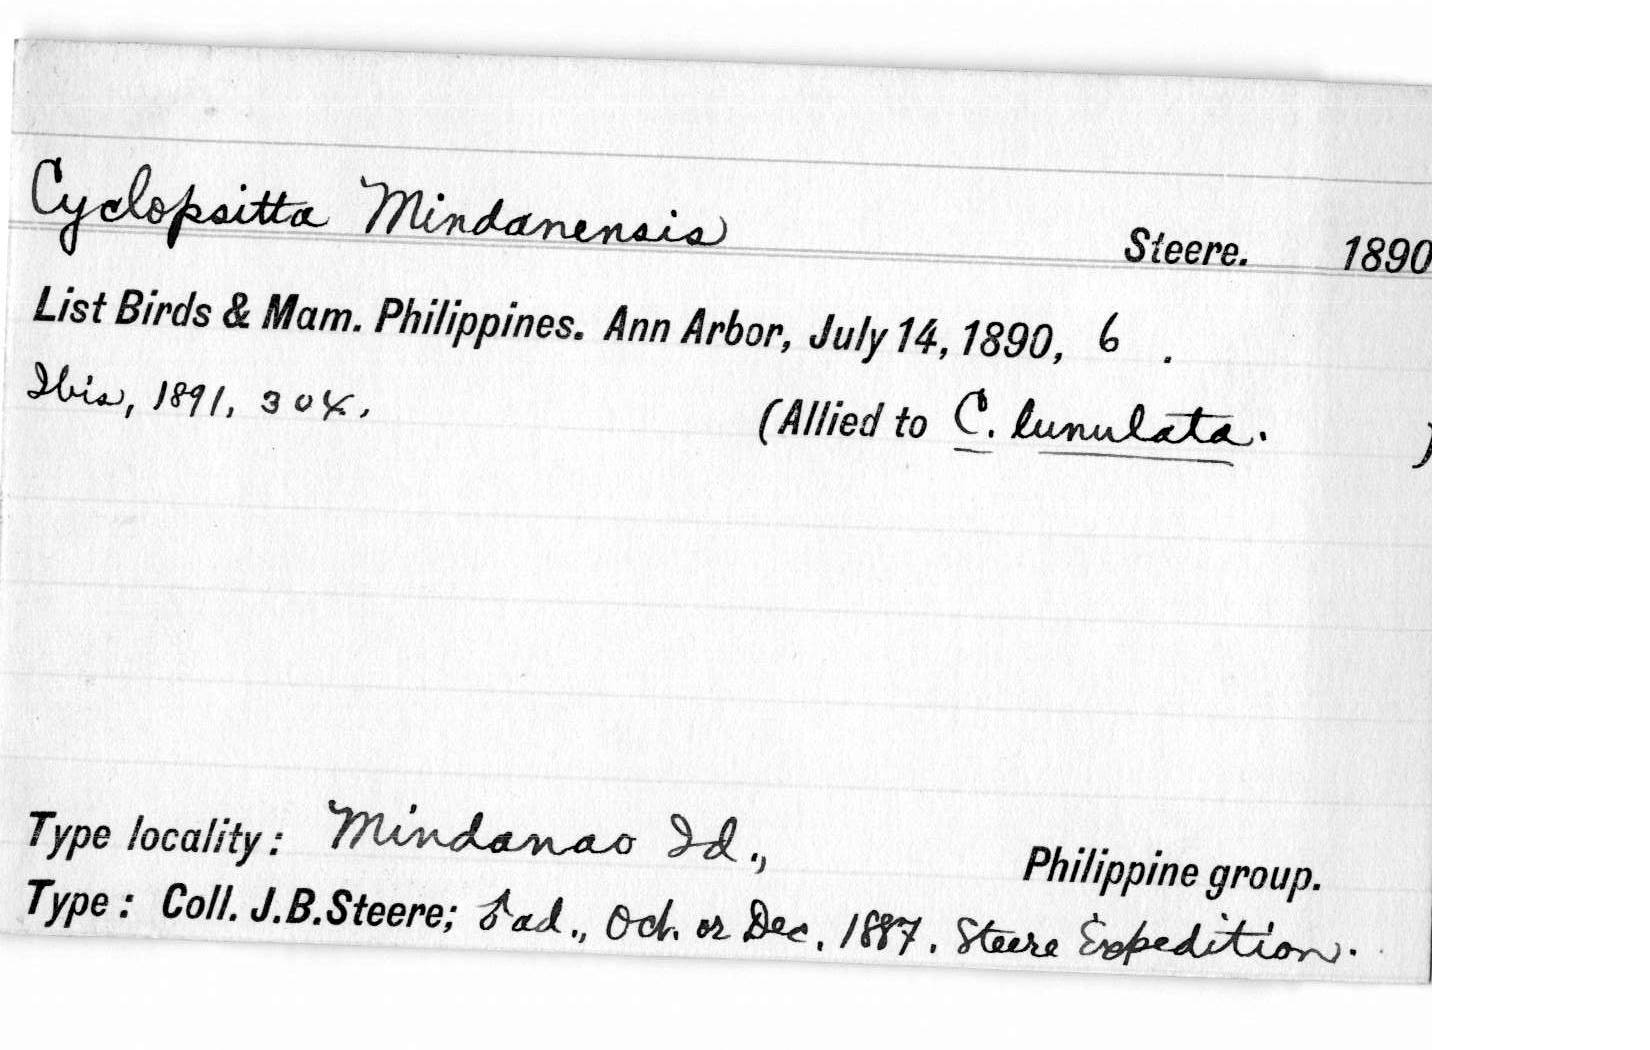 Cyclopsitta Mindanensis Steere. 1890
List Birds & Mam. Philippines. Ann Arbor, July 14, 1890, 6 .
Ibis, 1891, 304. (Allied to C. lunulata. )
Type locality: Mindanao Id., Philippine group.
Type: Coll. J.B.Steere; ♂ ad., Oct. or Dec. 1887. Steere Expedition.